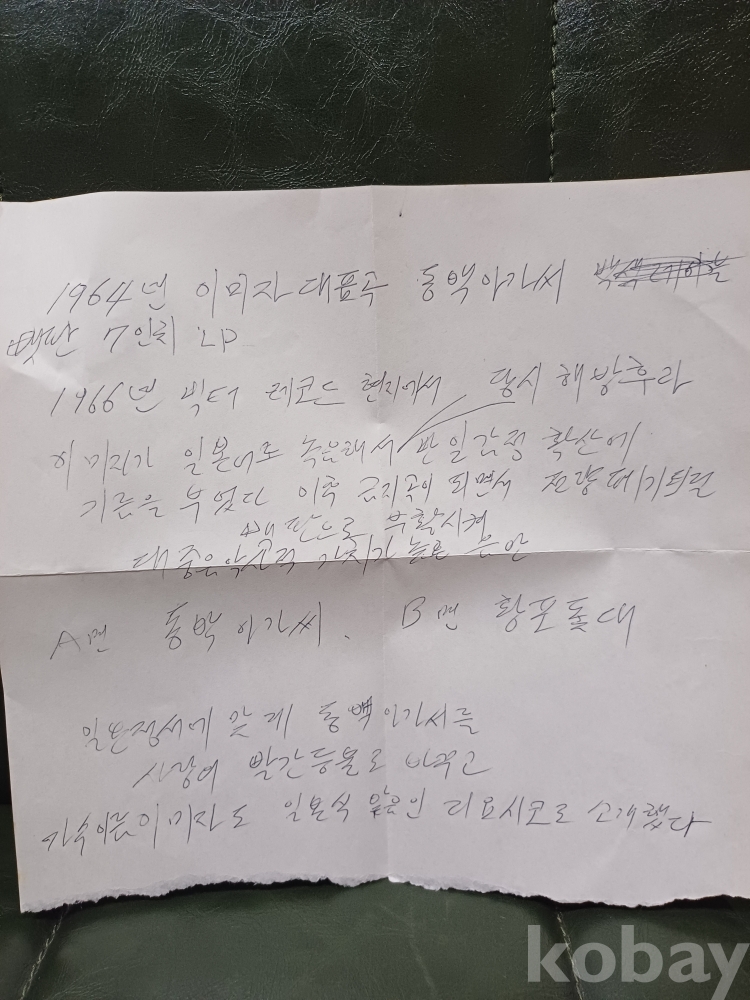 1964년 이미자 대표곡 동백아가씨
7인치 LP
1966년 빅터 레코드 현지에서 당시 해방후라
이미자가 일본어로 녹음해서 반일감정 확산에
기름을 부었다 이후 금지곡이 되면서 전량폐기되덜
부활시켜
대중음악 가치가 높은 음반
A면 동백아가씨. B면 황포돛대
일본정서에 맞게 동백아가서를
사랑의 빨간등불로 바꾸고
가수이름이미자도 일본식 리요시코로 소개했다
kobay